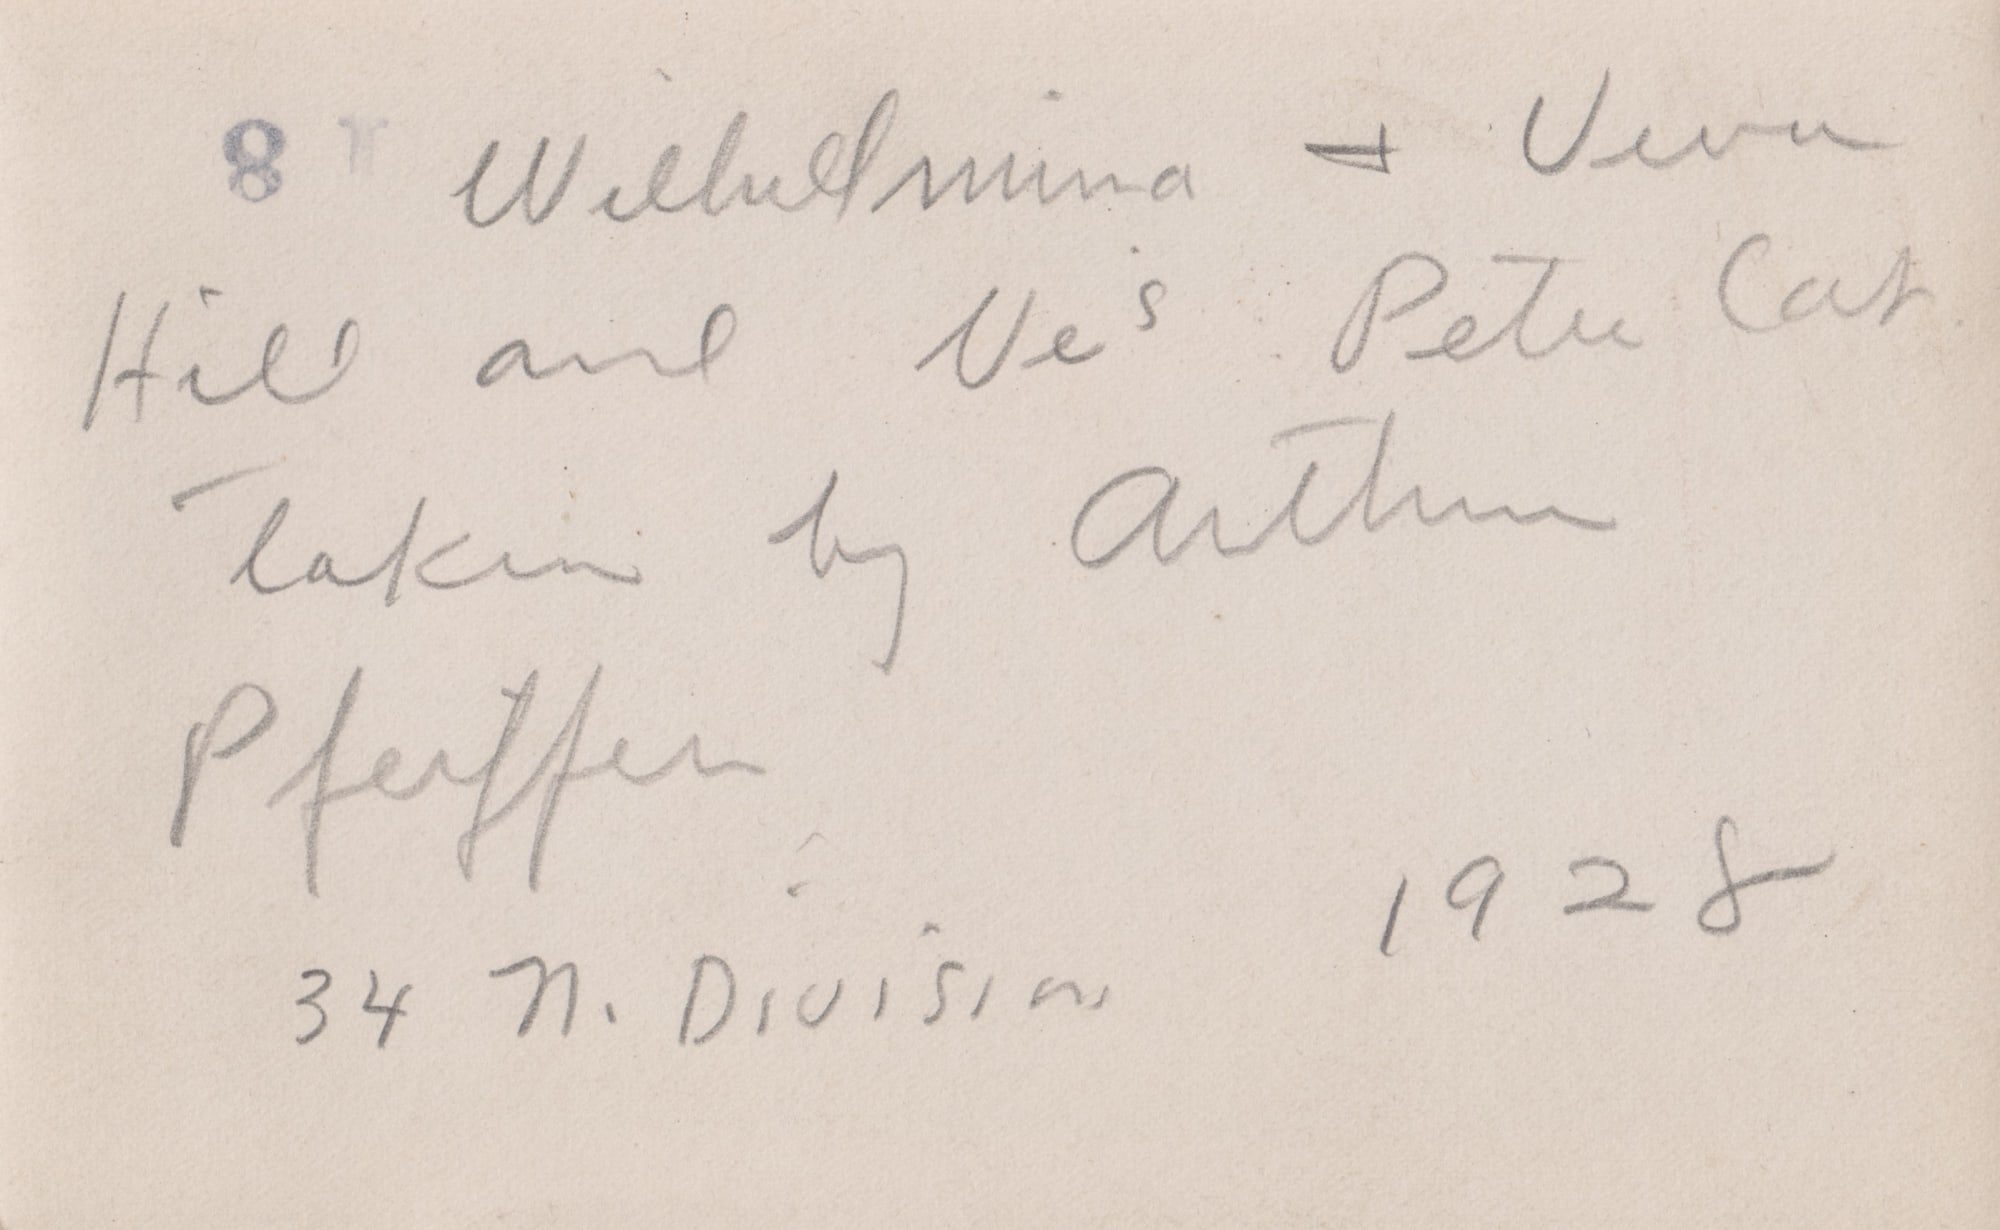 8 Wilhelmina + Veva
Hill and Ve's Pete Cat
Taken by Arthur
Pfeiffer
1928
34 N. Division